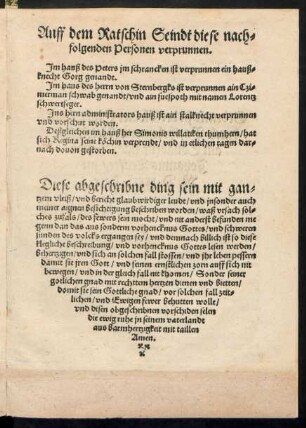 Auff dem Ratschin Seindt diese nach-
folgenden Personen verprunnen.
Jm hauß des Peters jm schrancken ist verprunnen ein hauß-
knecht Gorg genandt.
Jm haus des herrn von Sternbergks ist verprunnen ain Czi-
merman schwab genandt/vnd ain suespoth mit namen Lorentz
schwertfeger.
Jns hern administrators hauß ist ain stalknecht verprunnen
vnd verschut worden.
Desgleichen im hauß her Simonis willatiken thumhern/hat
sich Regina seine köchin verprendt/vnd in etlichen tagen dar-
nach douon gestorben.
Diese abgeschribne ding sein mit gan-
tzem vleiß/vnd bericht glaubwirdiger leude/vnd jnsonder auch
meiner aignen besichtigung beschriben worden/waß vrsach solches
zufals/des fewers sein mocht/vnd nit anderst befunden mt
genn dan das aus sonderm vorhencknus Gottes/vnd schweren
sunden des volcks ergangen sey/vnd demnach billich ist so diese
klegliche beschreibung/vnd vorhencknus Gottes lesen werden/
behertzigen/vnd sich an solchen fall stossen/vnd jhr leben pessern
damit sie jren Got/vnd seinen ernstlichen zorn auff sich nit
bewegen/vnd in der gleich fall nit khomen/Sonder seiner
gotlichen gnad mit rechtem hertzen dienen vnd bietten/
domit sie sein Gottliche gnad/vor solchem fall zeit-
lichen/vnd Ewigen fewer behutten wolle/
vnd disen obgeschribnen vorschiden selen
die ewig ruhe in seinem vaterlandt
aus barmhertzigkeit mit taillen
Amen.